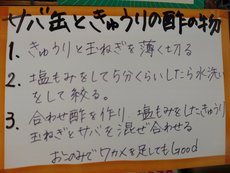 サバ缶ときゅうりの酢の物
1. きゅうりと玉ねぎを薄く切る
2. 塩もみをして5分くらいしたら水洗い
をして絞る。
3. 合わせ酢を作り、塩もみをしたきゅうり
玉ねぎとサバを混ぜ合わせる
おこのみでワカメを足してもGood